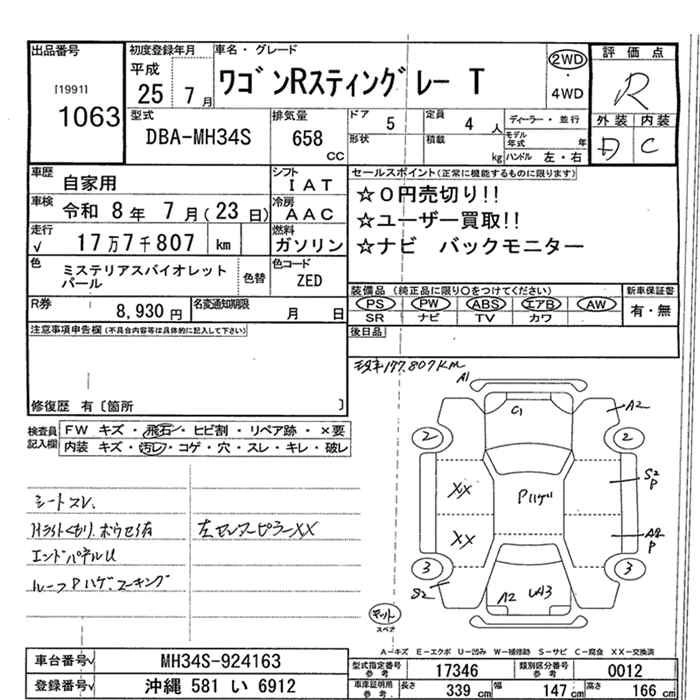 出品番号
[1991]
1063
初度登録年月
平成
25 7月
車名・グレード
ワゴンRスティングレー T
2WD
・
4WD
評価点
R
外装 内装
D C
型式
DBA-MH34S
排気量
658
cc
ドア
5
定員
4 人
ディーラー・並行
形状
積載
kg
モデル年式 年
ハンドル 左・右
車歴
自家用
シフト
IAT
車検
令和 8年 7月(23日)
冷房
AAC
走行
√ 17万7千807 km
燃料
ガソリン
色
ミステリアスバイオレット
パール
色替
色コード
ZED
R券
8,930円
名変通知期限
月 日
セールスポイント(正常に機能するものに限ります)
☆0円売切り!!
☆ユーザー買取!!
☆ナビ バックモニター
装備品 (純正品に限り○をつけてください)
PS PW ABS エアB AW
SR ナビ TV カワ
新車保証書
有・無
後日品
注意事項申告欄(不具合内容等は具体的に記入して下さい)
修復歴 有〔箇所 〕
検査員
記入欄
FW キズ・飛石・ヒビ割・リペア跡・×要
内装 キズ・汚レ・コゲ・穴・スレ・キレ・破レ
シートスレ
Hライトくもり、ボウセイ有
エンドパネルU
ルーフPハゲ、コーキング
左センターピラーXX
メーター177,807KM
A1
G1
A2
2
2
XX
Pハゲ
S2
P
XX
A2
P
3
3
S2
A2
UA3
キット
スペア
A-キズ E-エクボ U-凹み W-補修跡 S-サビ C-腐食 XX-交換済
車台番号√
MH34S-924163
登録番号√
沖縄 581 い 6912
型式指定番号
参考
17346
類別区分番号
参考
0012
車庫証明用
参考
長さ
339 cm
幅
147 cm
高さ
166 cm